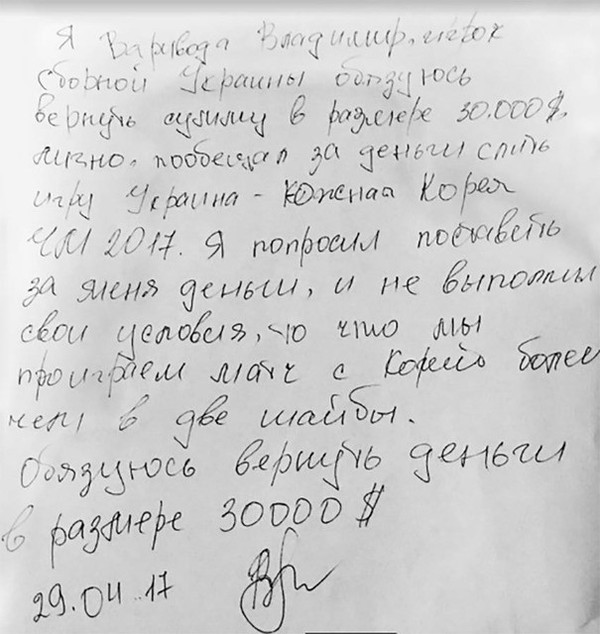 Я Варивода Владимир, игрок
сборной Украины обязуюсь
вернуть сумму в размере 30.000$,
лично, пообещал за деньги слить
игру Украина - Южная Корея
ЧМ 2017. Я попросил поставить
за меня деньги, и не выполнил
свои условия, то что мы
проиграем матч с Кореей более
чем в две шайбы.
Обязуюсь вернуть деньги
в размере 30000$
29.04.17